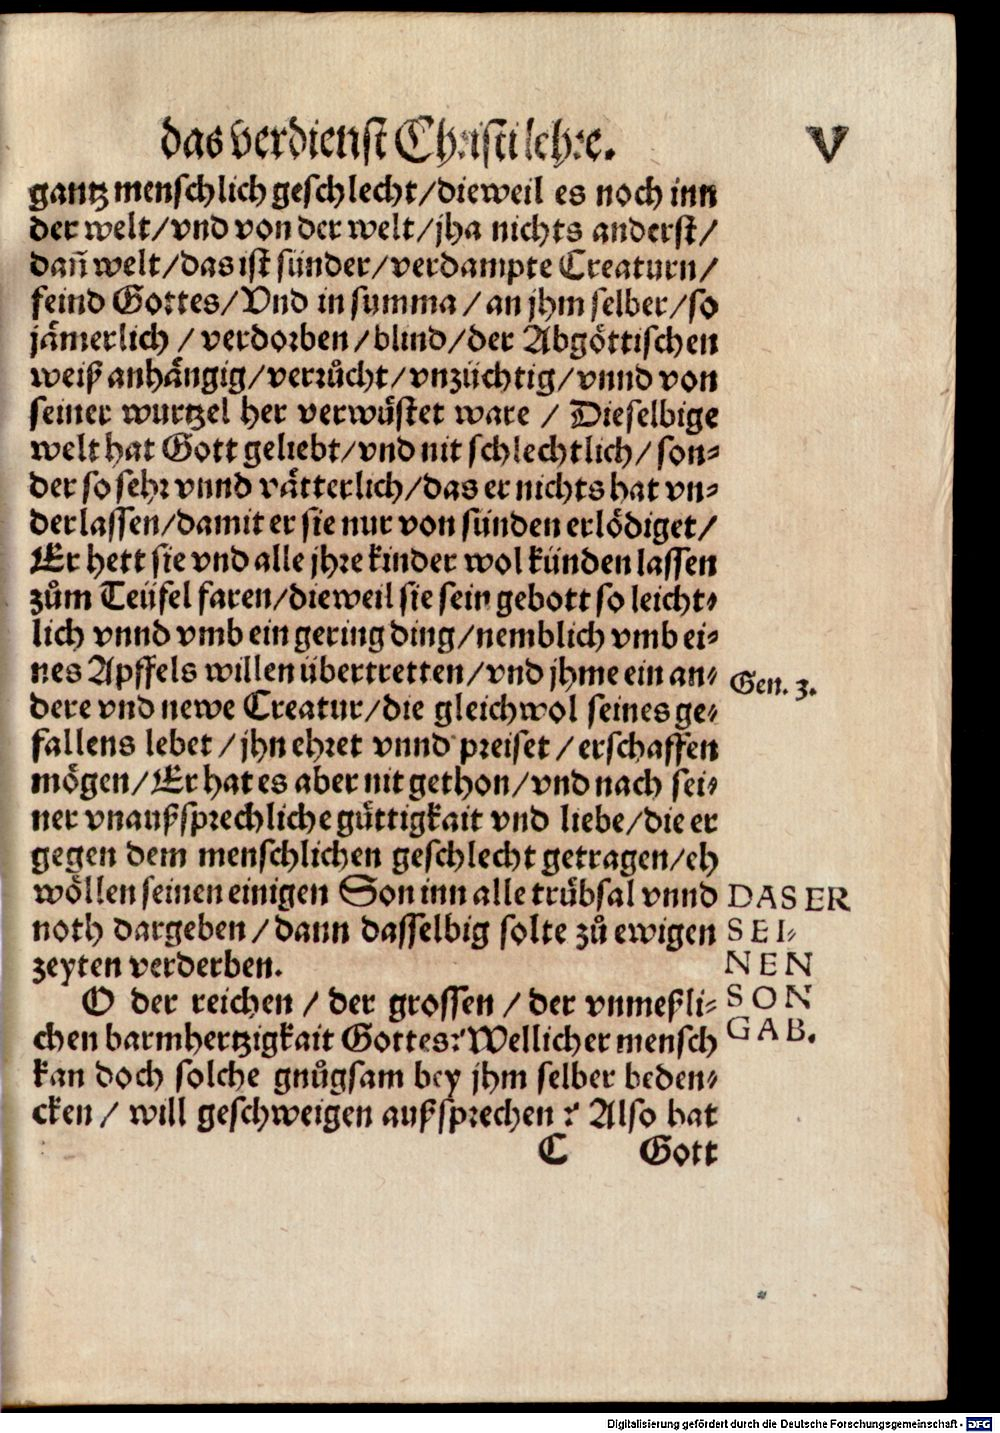 das verdienst Christi lehre. V
gantz menschlich geschlecht/dieweil es noch inn
der welt/vnd von der welt/jha nichts anderst/
dañ welt/das ist sünder/verdampte Creaturn/
feind Gottes/Vnd in summa/an jhm selber/so
jämerlich/verdorben/blind/der Abgöttischen
weiß anhängig/verrůcht/vnzüchtig/vnnd von
seiner wurtzel her verwüstet ware/Dieselbige
welt hat Gott geliebt/vnd nit schlechtlich/son-
der so sehr vnnd vätterlich/das er nichts hat vn-
derlassen/damit er sie nur von sünden erlödiget/
Er hett sie vnd alle jhre kinder wol künden lassen
zům Teüfel faren/dieweil sie sein gebott so leicht-
lich vnnd vmb ein gering ding/nemblich vmb ei-
nes Apffels willen übertretten/vnd jhme ein an-
Gen. 3.
dere vnd newe Creatur/die gleichwol seines ge-
fallens lebet/jhn ehret vnnd preiset/erschaffen
mögen/Er hat es aber nit gethon/vnd nach sei-
ner vnaußsprechliche güttigkait vnd liebe/die er
gegen dem menschlichen geschlecht getragen/eh
wöllen seinen einigen Son inn alle trübsal vnnd
noth dargeben/dann dasselbig solte zů ewigen
zeyten verderben.
DAS ER
SEI-
NEN
SON
GAB.
O der reichen/der grossen/der vnmeßli-
chen barmhertzigkait Gottes? Wellicher mensch
kan doch solche gnůgsam bey jhm selber beden-
cken/will geschweigen außsprechen? Also hat
C Gott
Digitalisierung gefördert durch die Deutsche Forschungsgemeinschaft - DFG